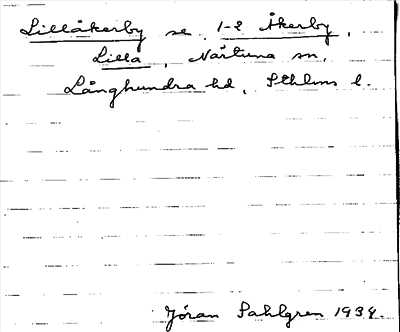 Lillåkerby se 1-2 Åkerby,
Lilla, Närtuna sn,
Långhundra hd, Sthlms l.
Jöran Sahlgren 1934.